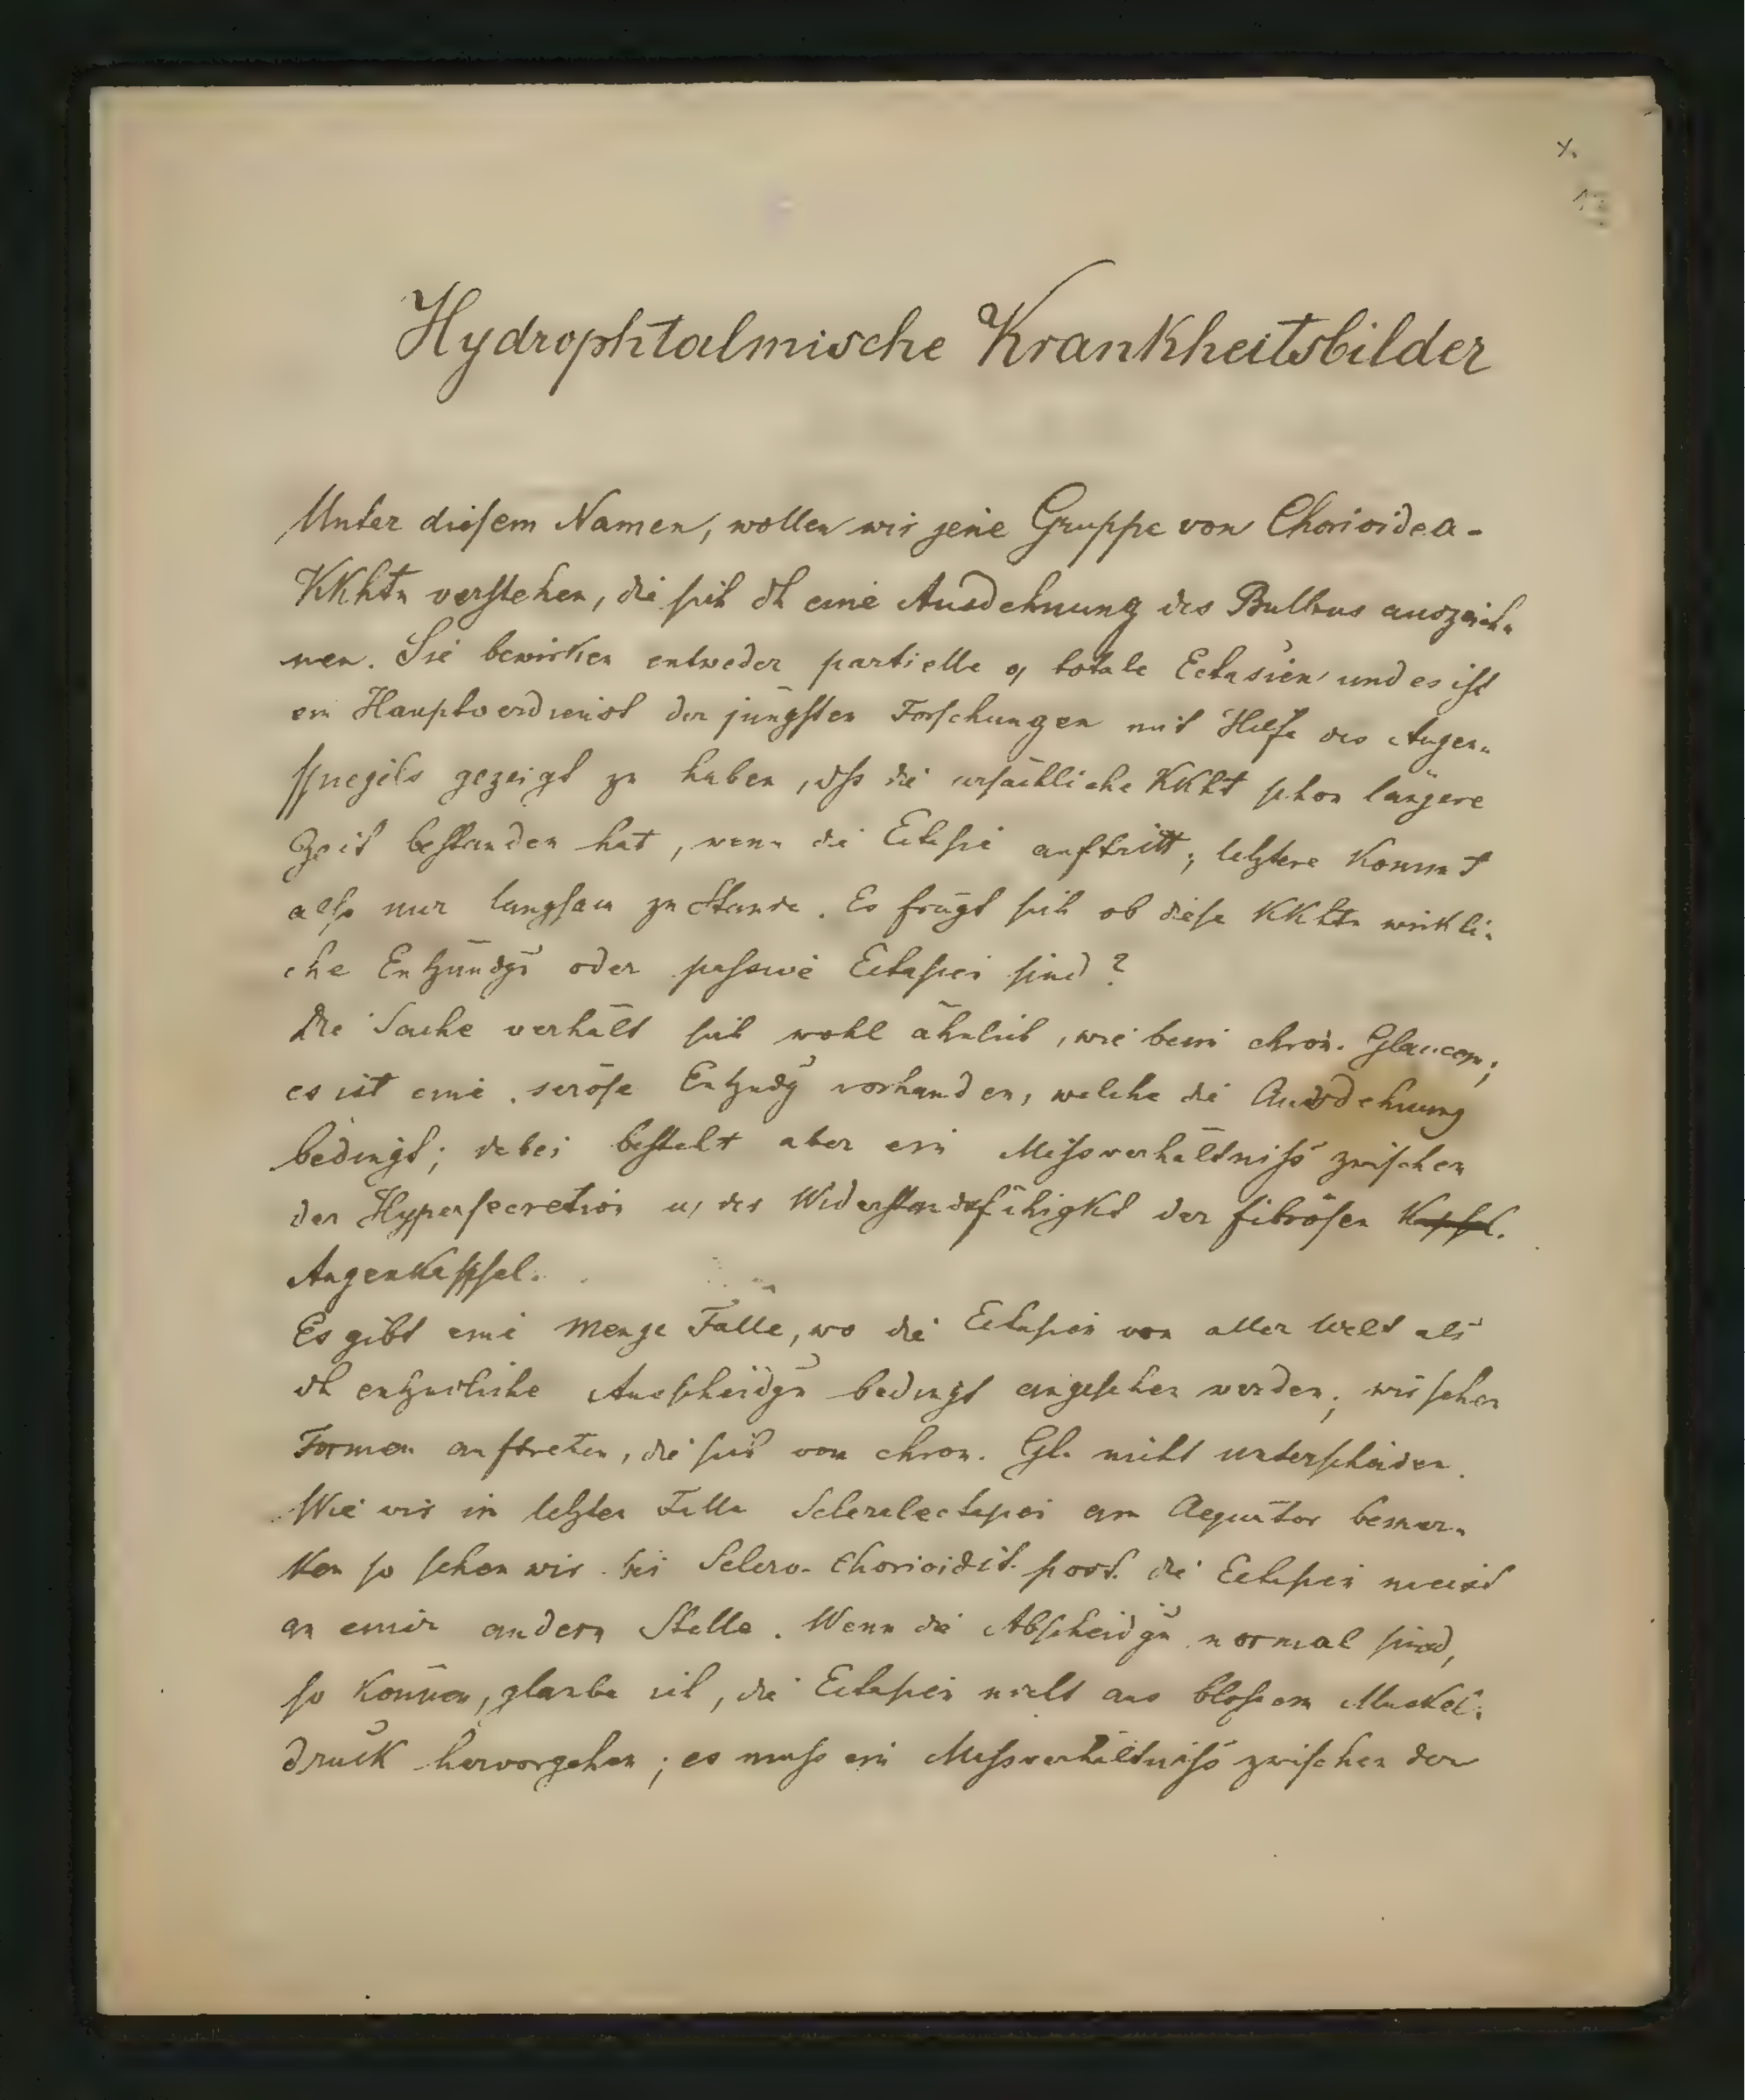 X.
1.
Hydrophtalmische Krankheitsbilder
Unter diesem Namen, wollen wir jene Gruppe von Chorioidea-
KKhtn verstehen, die sich dh eine Ausdehnung des Bulbus auszeich-
nen. Sie bewirken entweder partielle od totale Ectasien und es ist
ein Hauptverdienst der jüngsten Forschungen mit Hilfe des Augen-
spiegels gezeigt zu haben, dss die ursächliche KKht schon längere
Zeit bestanden hat, wenn die Ectasie auftritt; letztere kommt
also nur langsam zu Stande. Es frägt sich ob diese KKhtn wirkli-
che Entzündgn oder passive Ectasien sind?
Die Sache verhält sich wohl ähnlich, wie beim chron. Glaucom;
es ist eine seröse Entzndg vorhanden, welche die Ausdehnung
bedingt; dabei besteht aber ein Missverhältniss zwischen
der Hypersecretion u, der Widerstandsfähigkt der fibrösen Kapsel.
Augenkapsel.
Es gibt eine Menge Fälle, wo die Ectasien von aller Welt als
dh entzndliche Ausscheidgn bedingt angesehen werden; wir sehen
Formen auftreten, die sich vom chron. Gl. nicht unterscheiden.
Wie wir in letzter Falle Scleralectasien am Aequator bemer-
ken so sehen wir bei Sclero-Chorioidit. post. die Ectasien meist
an einer andern Stelle. Wenn die Abscheidgn normal sind,
so können, glaube ich, die Ectasien nicht aus blossem Muskel-
druck hervorgehen; es muss ein Missverhältniss zwischen der